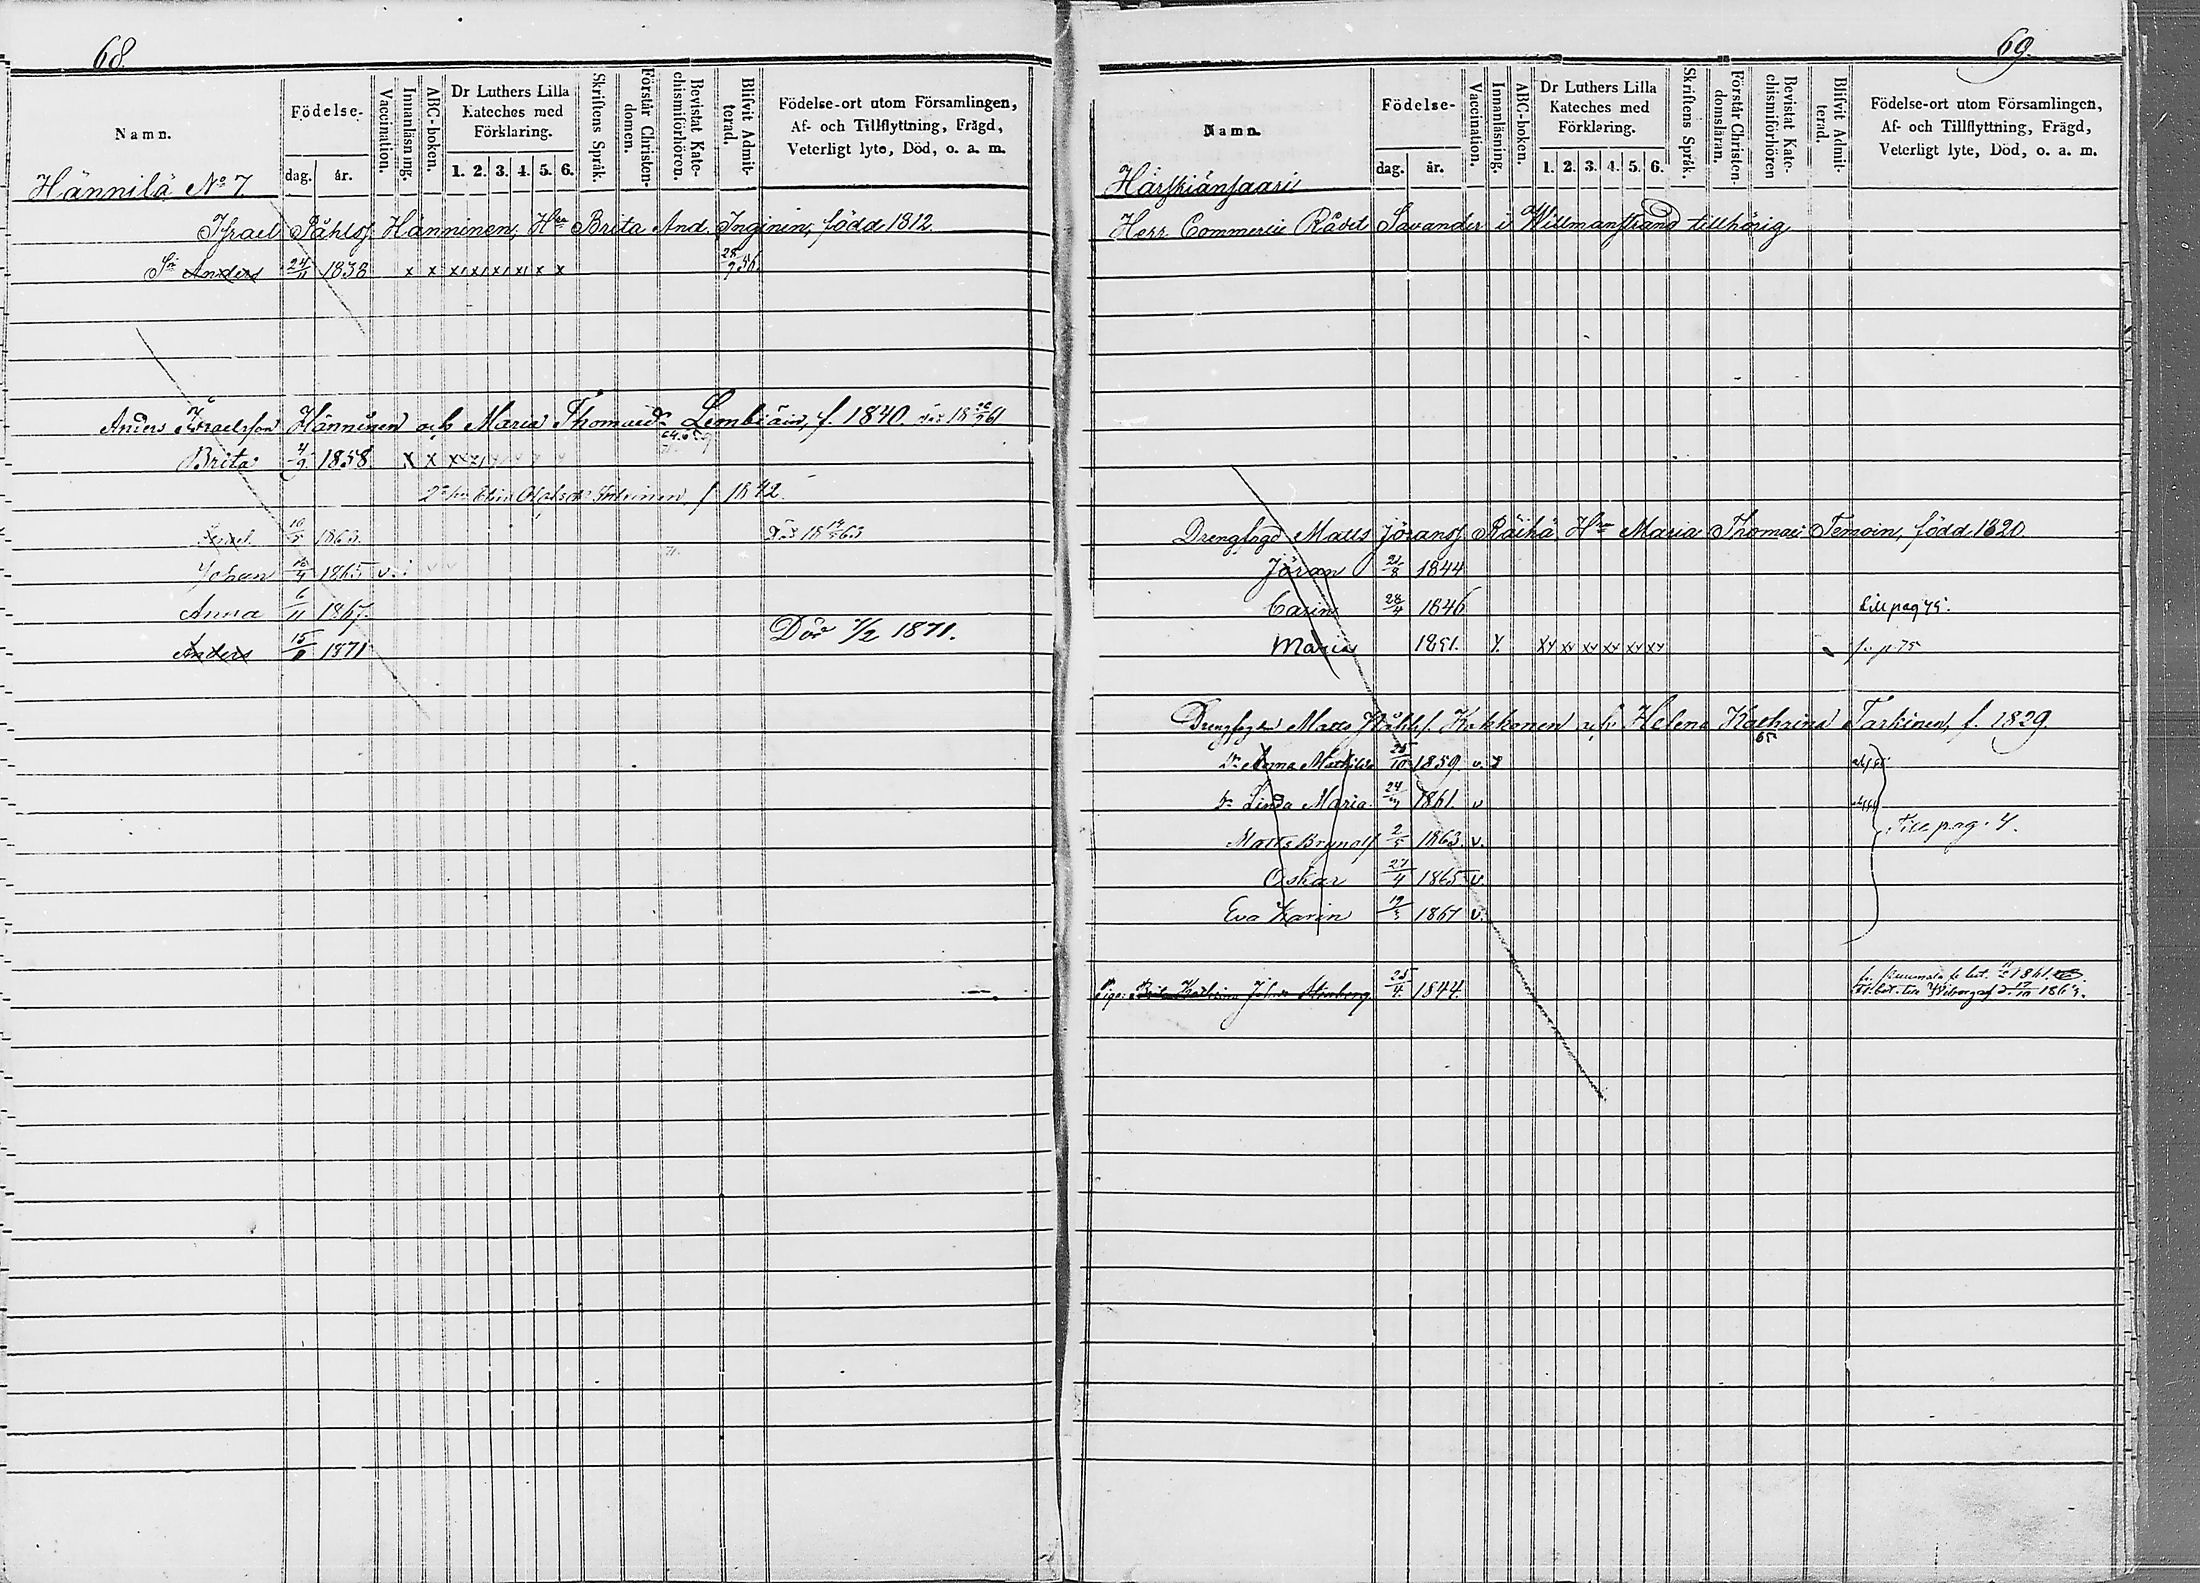 68.
Namn.
Födelse-
dag.
år.
Vaccination.
Innanläsning.
ABC-boken.
Dr Luthers Lilla
Kateches med
Förklaring.
1. 2. 3. 4. 5. 6.
Skriftens Språk.
Förstår Christen-
domen.
Bevistat Kate-
chismiförhören.
Blifvit Admit-
terad.
Födelse-ort utom Församlingen,
Af- och Tillflyttning, Frägd,
Veterligt lyte, Död, o. a. m.
Hännilä No 7
Israel Påhlsf Hänninen, Hru Brita And. Inginen, född 1812.
Sn Anders 24/11 1838 x x x x x x x x 28/9 56.
Anders Israelsson Hänninen och h Maria Thomasdr Lembiäin, f. 1840.
Brita 4/9 1858 x x
f 1842.
1863
Johan 1865 v
Anna 6/11 1867.
Anders 1871 Död 7/2 1871.
69.
Namn.
Födelse-
dag.
år.
Vaccination.
Innanläsning.
ABC-boken.
Dr Luthers Lilla
Kateches med
Förklaring.
1. 2. 3. 4. 5. 6.
Skriftens Språk.
Förstår Christen-
domsläran.
Bevistat Kate-
chismiförhören
Blifvit Admit-
terad.
Födelse-ort utom Församlingen,
Af- och Tillflyttning, Frägd,
Veterligt lyte, Död, o. a. m.
Härskiänsaari
Herr Commercie Rådet Savander i Willmanstrand tillhörig
Matts Jöransf Räihä, Hru Maria Thomae Temoin, född 1820.
Jöran 1844
Carin 28/4 1846 till pag 75.
Maria 1851.
Matts Påhlsf. Kukkonen och h Helena Kathrina Tarkinen, f. 1829.
Anna Mathilda 25/10 1859. v.
Linda Maria 1861. v
Till pag. 4.
Matts Brynolf 2/5 1863. v.
Oskar 27/4 1865 v.
Eva Karin 1867 v.
Pigan Brita Kathrina 25/4 1844.